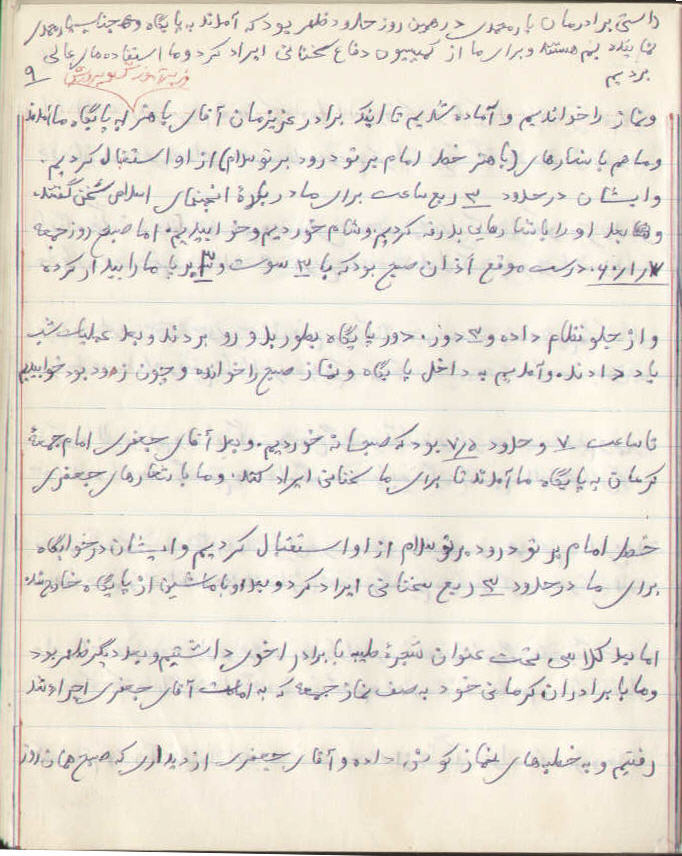 راستی برادرمان یارمحمدی در همین روز حدود ظهر بود که آمدند به پایگاه و جناب یارمحمدی
نماینده بم هستند و برای ما از کمیسیون دفاع سخنانی ایراد کرد و ما استفاده‌های عالی
بردیم
۹
وزیر آموزش و پرورش
و نماز را خواندیم و آماده شدیم تا اینکه برادر عزیزمان آقای باهنر به پایگاه ما آمدند
و ما هم با شعارهای (باهنر خط امام بر تو درود بر تو سلام) از او استقبال کردیم.
و ایشان در حدود ۳ ربع ساعت برای ما درباره انجمنهای اسلامی سخن گفتند.
و بعد او را با شعارهایی بدرقه کردیم. و شام خوردیم و خوابیدیم. اما صبح روز جمعه
درست موقع اذان صبح بود که با ۳ سوت و ۳ برپا ما را بیدار کرده
و از جلو نظام داده و ۳ دور، دور پایگاه بطور بدو رو بردند و بعد عملیات شب
یاد دادند. و آمدیم به داخل پایگاه و نماز صبح را خوانده و چون زود بود خوابیدیم
تا ساعت ۷ و حدود ۷/۵ بود که صبحانه خوردیم. و بعد آقای جعفری امام جمعهٔ
کرمان به پایگاه ما آمدند تا برای ما سخنانی ایراد کند. و ما با شعارهای جعفری
خط امام بر تو درود بر تو سلام از او استقبال کردیم و ایشان در خوابگاه
برای ما در حدود ۳ ربع سخنانی ایراد کرد و بعد او با ماشین از پایگاه خارج شد
اما بعد کلاسی تحت عنوان شجرهٔ طیبه با برادر اخوی داشتیم و بعد دیگر ظهر بود
و ما با برادران کرمانی خود به صف نماز جمعه که به امامت آقای جعفری اجرا شد
رفتیم و به خطبه‌های نماز گوش داده و آقای جعفری از دیداری که صبح همان روز